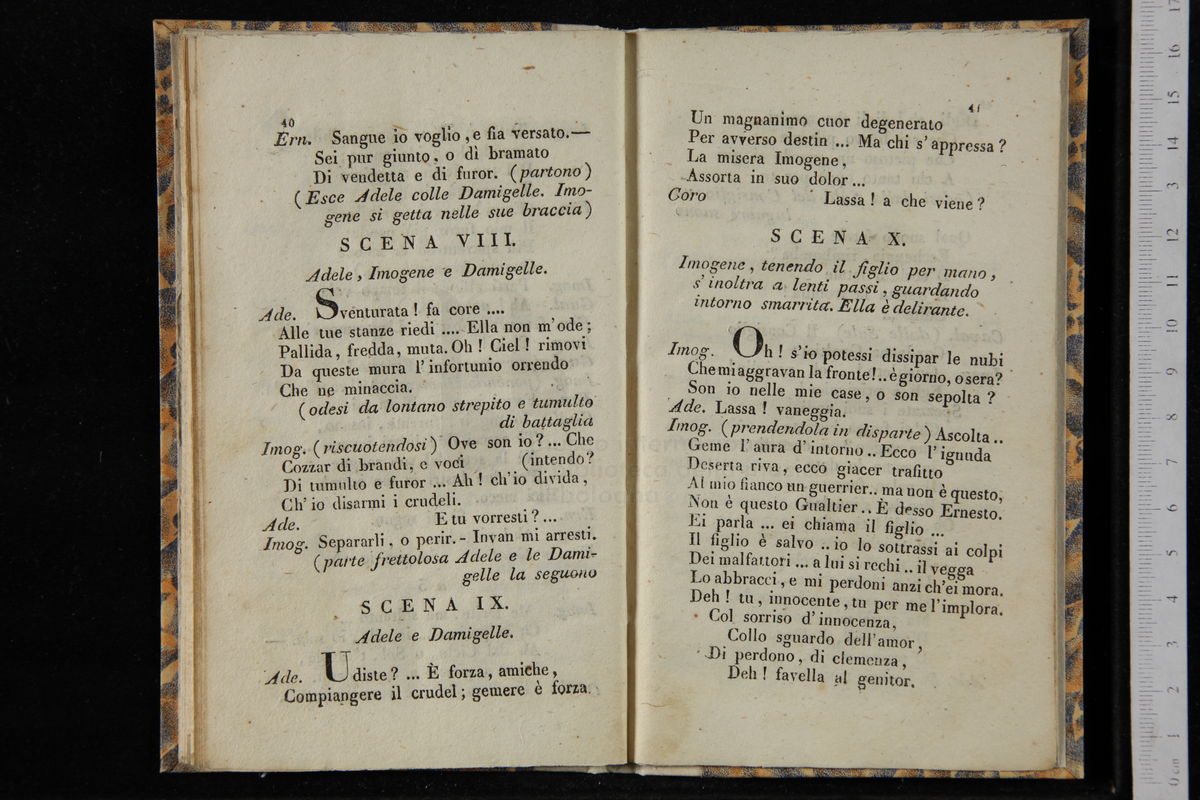 40
Ern. Sangue io voglio, e fia versato.—
Sei pur giunto, o dì bramato
Di vendetta e di furor. (partono)
(Esce Adele colle Damigelle. Imo-
gene si getta nelle sue braccia)
SCENA VIII.
Adele, Imogene e Damigelle.
Ade. Sventurata! fa core ....
Alle tue stanze riedi .... Ella non m'ode;
Pallida, fredda, muta. Oh! Ciel! rimovi
Da queste mura l'infortunio orrendo
Che ne minaccia.
(odesi da lontano strepito e tumulto
di battaglia
Imog. (riscuotendosi) Ove son io? ... Che
Cozzar di brandi, e voci (intendo?
Di tumulto e furor ... Ah! ch'io divida,
Ch'io disarmi i crudeli.
Ade. E tu vorresti? ...
Imog. Separarli, o perir. - Invan mi arresti.
(parte frettolosa Adele e le Dami-
gelle la seguono
SCENA IX.
Adele e Damigelle.
Ade. Udiste? ... È forza, amiche,
Compiangere il crudel; gemere è forza
41
Un magnanimo cuor degenerato
Per avverso destin ... Ma chi s'appressa?
La misera Imogene,
Assorta in suo dolor ...
Coro Lassa! a che viene?
SCENA X.
Imogene, tenendo il figlio per mano,
s'inoltra a lenti passi, guardando
intorno smarrita. Ella è delirante.
Imog. Oh! s'io potessi dissipar le nubi
Che mi aggravan la fronte!.. è giorno, o sera?
Son io nelle mie case, o son sepolta?
Ade. Lassa! vaneggia.
Imog. (prendendola in disparte) Ascolta ..
Geme l'aura d'intorno .. Ecco l'ignuda
Deserta riva, ecco giacer trafitto
Al mio fianco un guerrier.. ma non è questo,
Non è questo Gualtier .. È desso Ernesto.
Ei parla ... ei chiama il figlio ...
Il figlio è salvo .. io lo sottrassi ai colpi
Dei malfattori ... a lui si rechi .. il vegga
Lo abbracci, e mi perdoni anzi ch'ei mora.
Deh! tu, innocente, tu per me l'implora.
Col sorriso d'innocenza,
Collo sguardo dell'amor,
Di perdono, di clemenza,
Deh! favella al genitor.
17
16
15
14
13
12
11
10
9
8
7
6
5
4
3
2
1
0 cm